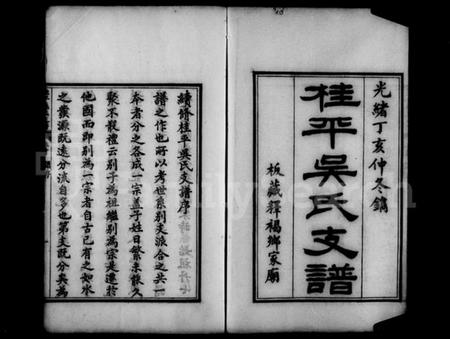 光緒丁亥仲冬鐫
桂平吳氏支譜
板藏釋褐鄉家廟
續修桂平吳氏支譜序
譜之作也所以考世系別支派合之共一
本者分之各成一宗蓋子姓日繁未能久
聚不散禮云別子為祖繼別為宗是遷於
他國而即別為一宗者自古已有之如水
之發源既遠分流自多也第支既分矣為